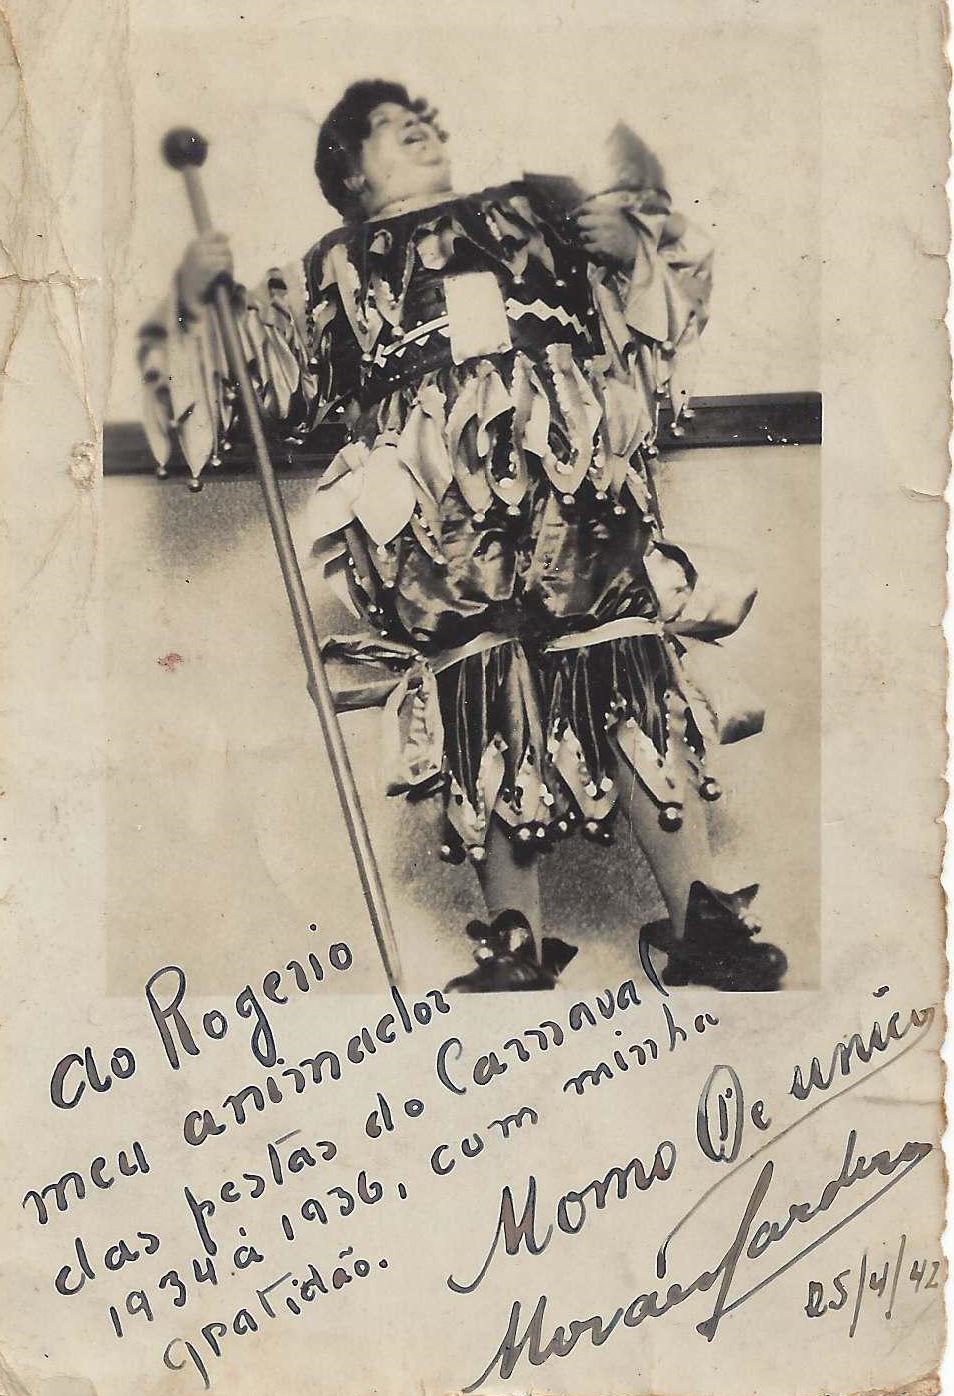 ao Rogerio
meu animador
das festas do Carnaval
1934 à 1936, com minha
gratidão.
Momo De unico
Moraes Cardoso
25/4/42